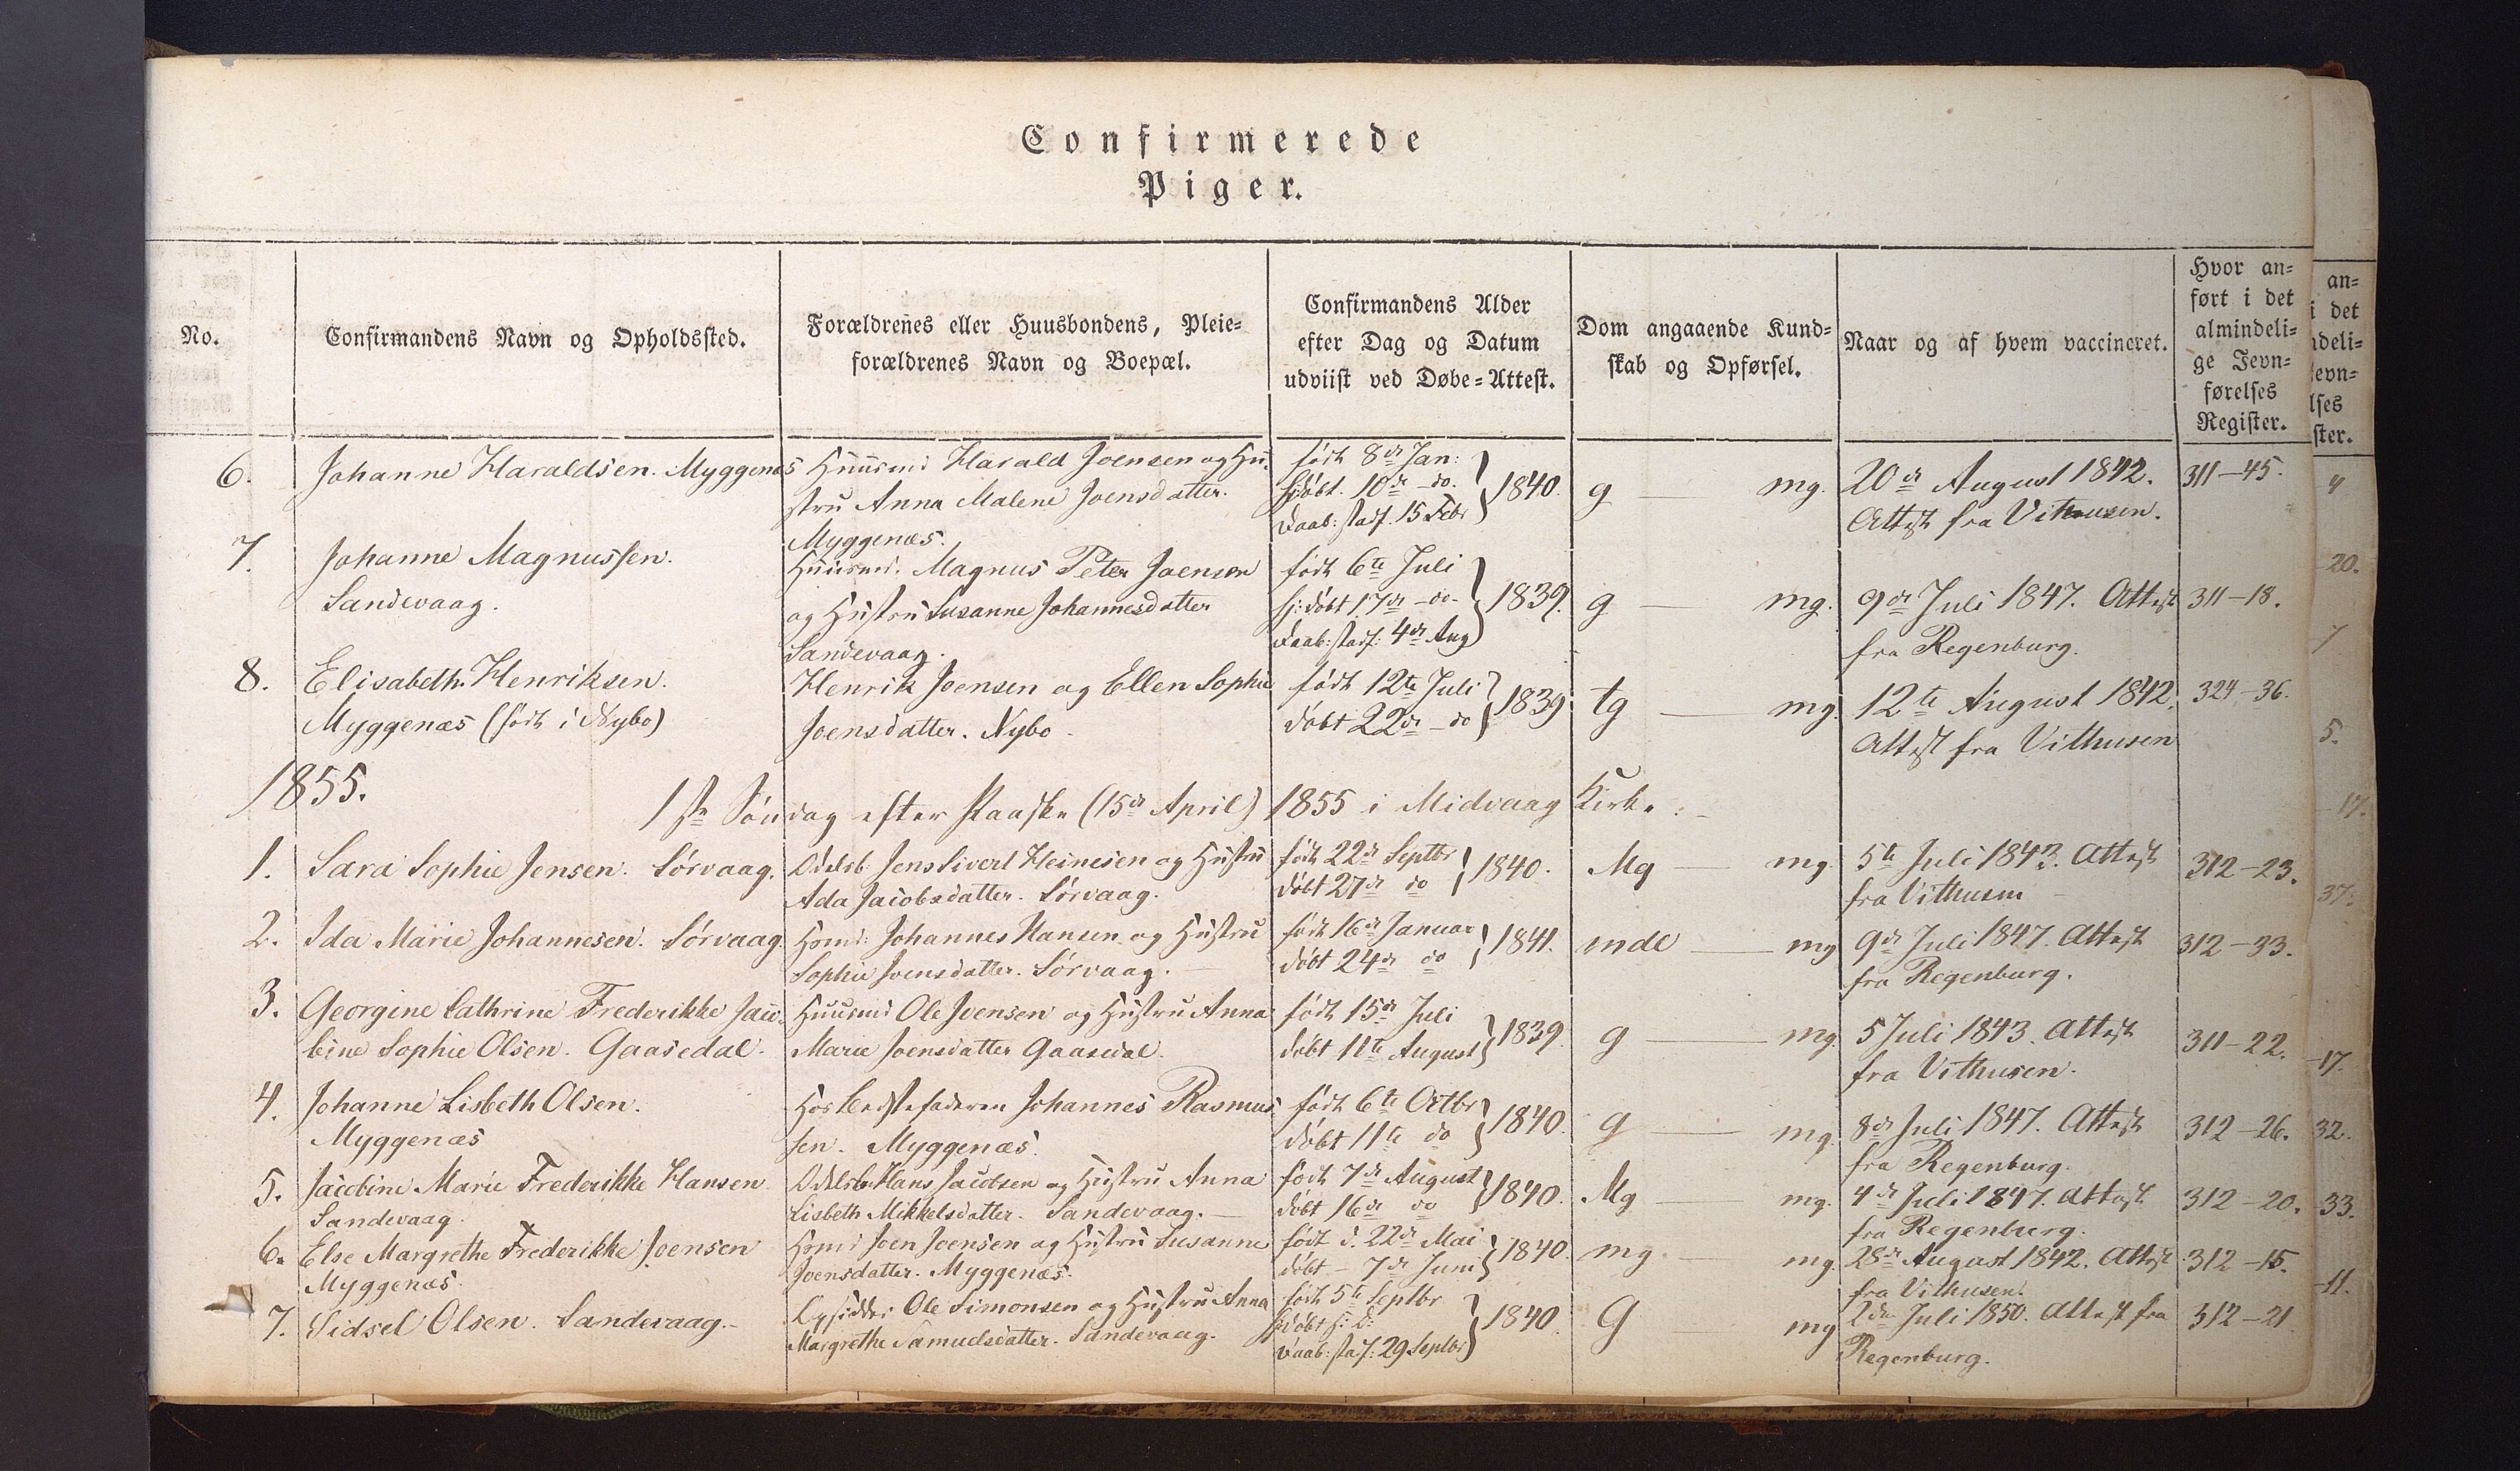 Confirmerede
Piger.
No.
Confirmandens Navn og Opholdssted.
Forældrenes eller Huusbondens, Pleie-
forældrenes Navn og Boepæl.
Confirmandens Alder
efter Dag og Datum
udviist ved Døbe-Attest.
Dom angaaende Kund-
skab og Opførsel.
Naar og af hvem vaccineret.
Hvor an-
ført i det
almindeli-
ge Jevn-
førelses
Register.
6.
Johanne Haraldsen. Myggenæs
Huusmd Harald Joensen og Hu-
stru Anna Malene Joensdatter.
Myggenæs.
født 8de Jan:
hjdøbt. 10de do.
Daab: stadf. 15 Febr
1840.
g — mg.
20de August 1842.
Attest fra Vithusen.
311-45.
7.
Johanne Magnussen.
Sandevaag.
Huusmd. Magnus Peter Joensen
og Hustru Susanne Johannesdatter
Sandevaag.
født 6te Juli
hj:døbt 17de do
Daab:stadf: 4de Aug
1839.
g — mg.
9de Juli 1847. Attest
fra Regenburg.
311-18.
8.
Elisabeth Henriksen.
Myggenæs (født i Nybo)
Henrik Joensen og Ellen Sophie
Joensdatter. Nybo.
født 12te Juli
døbt 22de do
1839.
tg — mg.
12te August 1842.
Attest fra Vithusen
324-36.
1855.
1ste Søndag efter Paaske (15de April) 1855 i Midvaag Kirke.
1.
Sara Sophie Jensen. Sørvaag.
Odelsb. Jens Sivert Heinesen og Hustru
Ada Jacobsdatter. Sørvaag.
født 22de Septbr
døbt 27de do
1840.
Mg — mg.
5te Juli 1843. Attest
fra Vithusen
312-23.
2.
Ida Marie Johannesen. Sørvaag.
Hsmd: Johannes Hansen og Hustru
Sophie Joensdatter. Sørvaag.
født 16de Januar
døbt 24de do
1841.
mdl — mg
9de Juli 1847. Attest
fra Regenburg.
312-33.
3.
Georgine Cathrine Frederikke Jaco-
bine Sophie Olsen. Gaasedal.
Huusmd Ole Joensen og Hustru Anna
Marie Joensdatter Gaasedal.
født 15de Juli
døbt 11te August
1839.
g — mg.
5 Juli 1843. Attest
fra Vithusen.
311-22.
4.
Johanne Lisbeth Olsen.
Myggenæs
Hos Bedstefaderen Johannes Rasmus-
sen. Myggenæs.
født 6te Octbr
døbt 11te do
1840.
g — mg.
8de Juli 1847. Attest
fra Regenburg.
312-26.
5.
Jacobine Marie Frederikke Hansen
Sandevaag.
Odelsb. Hans Jacobsen og Hustru Anna
Lisbeth Mikkelsdatter. Sandevaag.
født 7de August
døbt 16de do
1840.
Mg — mg.
4de Juli 1847. Attest
fra Regenburg.
312-20.
6.
Else Margrethe Frederikke Joensen
Myggenæs.
Hsmd Joen Joensen og Hustru Susanne
Joensdatter. Myggenæs.
født d. 22de Mai
døbt - 7de Juni
1840.
mg. — mg.
28de August 1842. Attest
fra Vithusen.
312-15.
7.
Sidsel Olsen. Sandevaag.
Opsidder Ole Simonsen og Hustru Anna
Margrethe Samuelsdatter. Sandevaag.
født 5te Septbr
hjdøbt s: D:
Daab: stadf: 29 Septbr
1840.
G — mg
2den Juli 1850. Attest fra
Regenburg.
312-21
an-
i det
ndeli-
Jevn-
lses
ster.
4
20.
7
5.
17.
37.
-17.
32.
33.
-11.